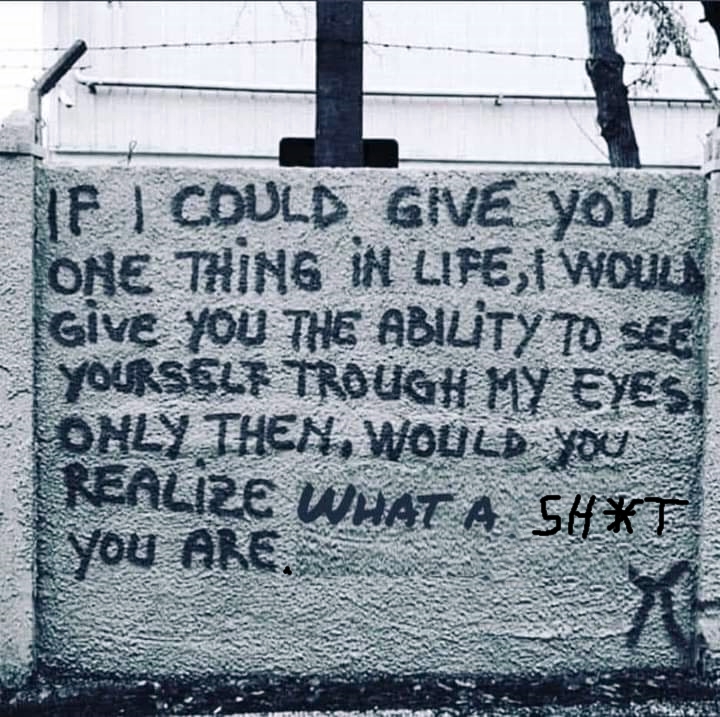 IF I COULD GIVE YOU
ONE THING IN LIFE, I WOULD
GIVE YOU THE ABILITY TO SEE
YOURSELF TROUGH MY EYES.
ONLY THEN, WOULD YOU
REALIZE WHAT A SH*T
YOU ARE.